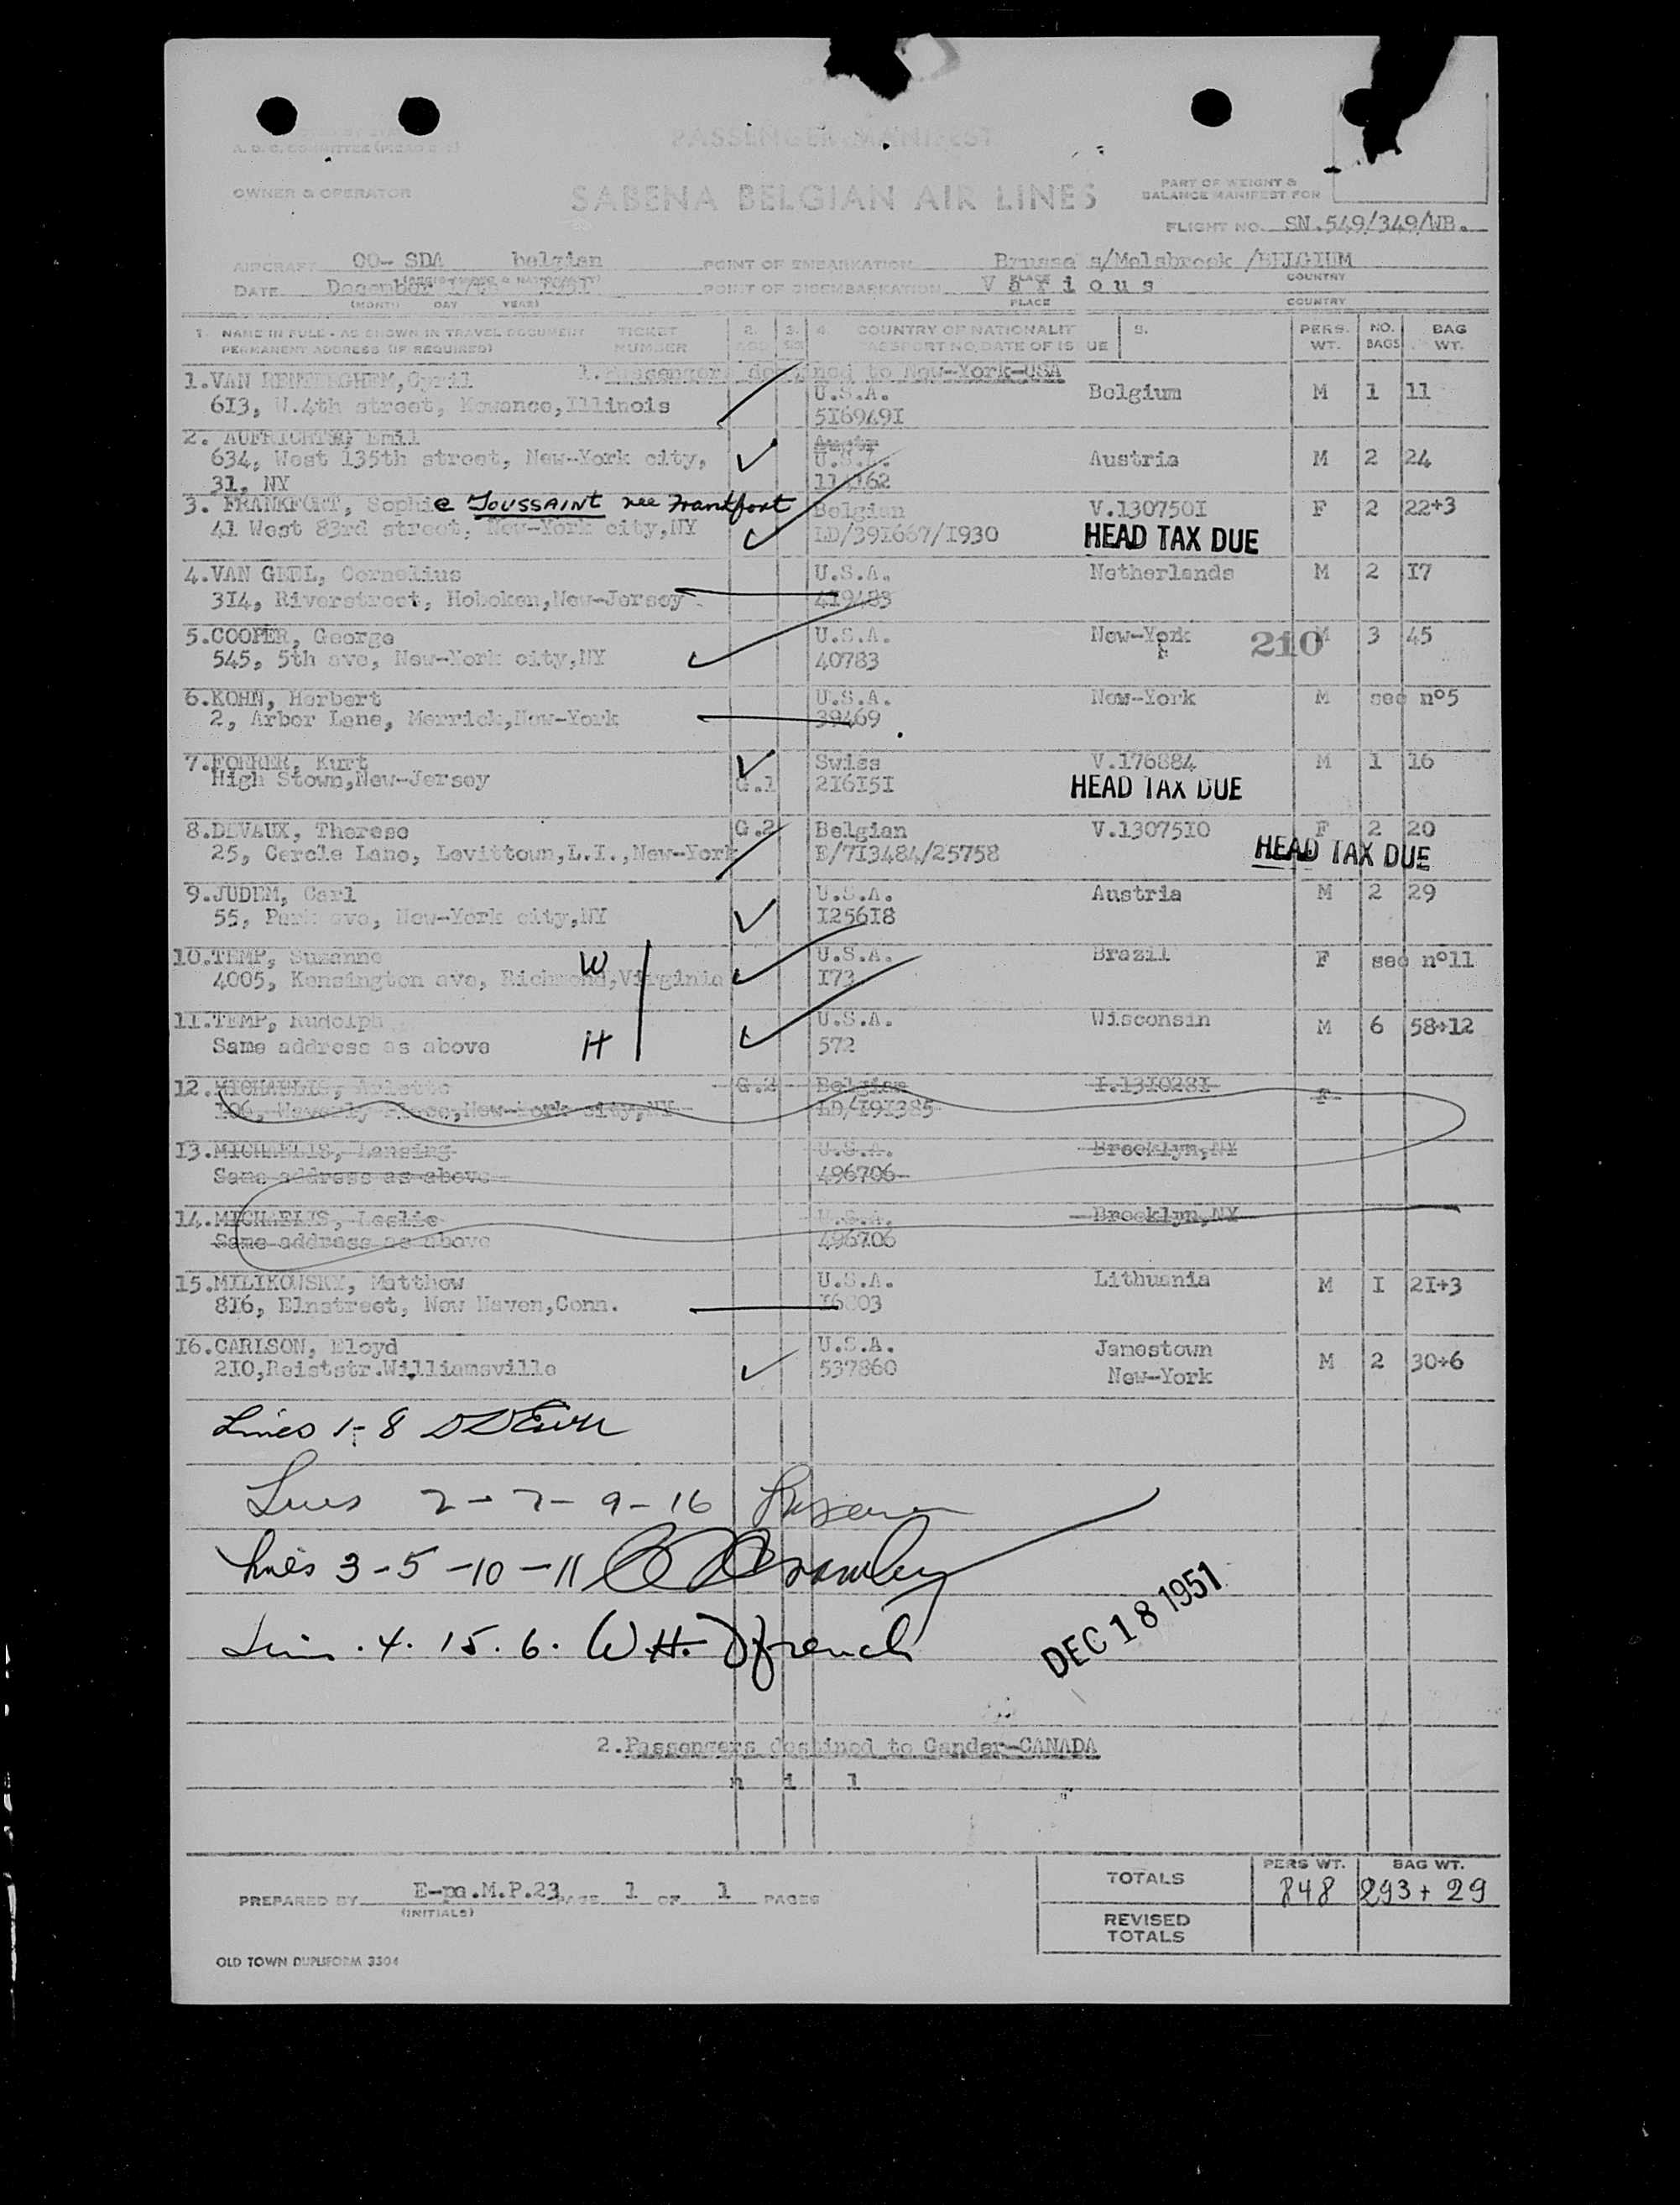 A. D. C. COMMITTEE
PASSENGER MANIFEST
OWNER & OPERATOR
SABENA BELGIAN AIR LINES
PART OF WEIGHT &
BALANCE MANIFEST FOR
FLIGHT NO. SN.549/349/WB.
AIRCRAFT OO- SDA belgian POINT OF EMBARKATION Brusse s/Melsbroek /BELGIUM
PLACE COUNTRY
DATE December POINT OF DISEMBARKATION V a r i o u s
(MONTH) DAY YEAR) PLACE COUNTRY
1. NAME IN FULL - AS SHOWN IN TRAVEL DOCUMENT TICKET 2. 3. 4. COUNTRY OF NATIONALIT 5. PERS. NO. BAG
PERMANENT ADDRESS (IF REQUIRED) NUMBER PASSPORT NO, DATE OF IS UE WT. BAGS WT.
1.Passengers destined to New-York-USA
1.VAN RENTERGHEM,Cyril U.S.A. Belgium M 1 11
613, W.4th street, Kewanee,Illinois 5169491
2. Emil Austr
634, West 135th street, New-York city, U.S.A. Austria M 2 24
31, NY
3. FRANKFORT, Sophie TOUSSAINT nee Frankfort Belgian V.1307501 F 2 22+3
41 West 83rd street, New-York city,NY LD/391667/1930 HEAD TAX DUE
4.VAN GEEL, Cornelius U.S.A. Netherlands M 2 17
314, Riverstreet, Hoboken,New-Jersey. 419483
5.COOPER, George U.S.A. New-York 210 M 3 45
545, 5th ave, New-York city,NY 40783
6.KOHN, Herbert U.S.A. New-York M see n°5
2, Arbor Lane, Merrick,New-York 39469
7. Kurt Swiss V.176884 M 1 16
High Stown,New-Jersey G.1 216151 HEAD TAX DUE
8.DEVAUX, Therese G.2 Belgian V.1307510 F 2 20
25, Cercle Lane, Levittown,L.I.,New-York E/713484/25758 HEAD TAX DUE
9.JUDEM, Carl U.S.A. Austria M 2 29
55, Park ave, New-York city,NY 125618
10.TEMP, Suzanne W U.S.A. Brazil F see n°11
4005, Kensington ave, Richmond,Virginia 173
11.TEMP, Rudolph U.S.A. Wisconsin M 6 58+12
Same address as above H 572
12.MICHAELIS, Arlette G.2 Belgian I.1310281 F
106, Waverly Place,New-York city,NY LD/191385
13.MICHAELIS, Lansing U.S.A. Brooklyn,NY
Same address as above 496706
14.MICHAELIS, Leslie U.S.A. Brooklyn,NY
Same address as above 496706
15.MILIKOWSKY, Matthew U.S.A. Lithuania M 1 21+3
816, Elmstreet, New Haven,Conn.
16.CARLSON, Lloyd U.S.A. Jamestown M 2 30+6
210,Reiststr.Williamsville 537860 New-York
Lines 1-8
Lines 2-7-9-16
Lines 3-5-10-11
Lin . 4. 15. 6. W.H. Ffrench
DEC 18 1951
2.Passengers destined to Gander-CANADA
n i l
TOTALS PERS WT. BAG WT.
848 293 + 29
PREPARED BY E-pa.M.P.23 PAGE 1 OF 1 PAGES
(INITIALS)
REVISED
TOTALS
OLD TOWN DUPLIFORM 3304